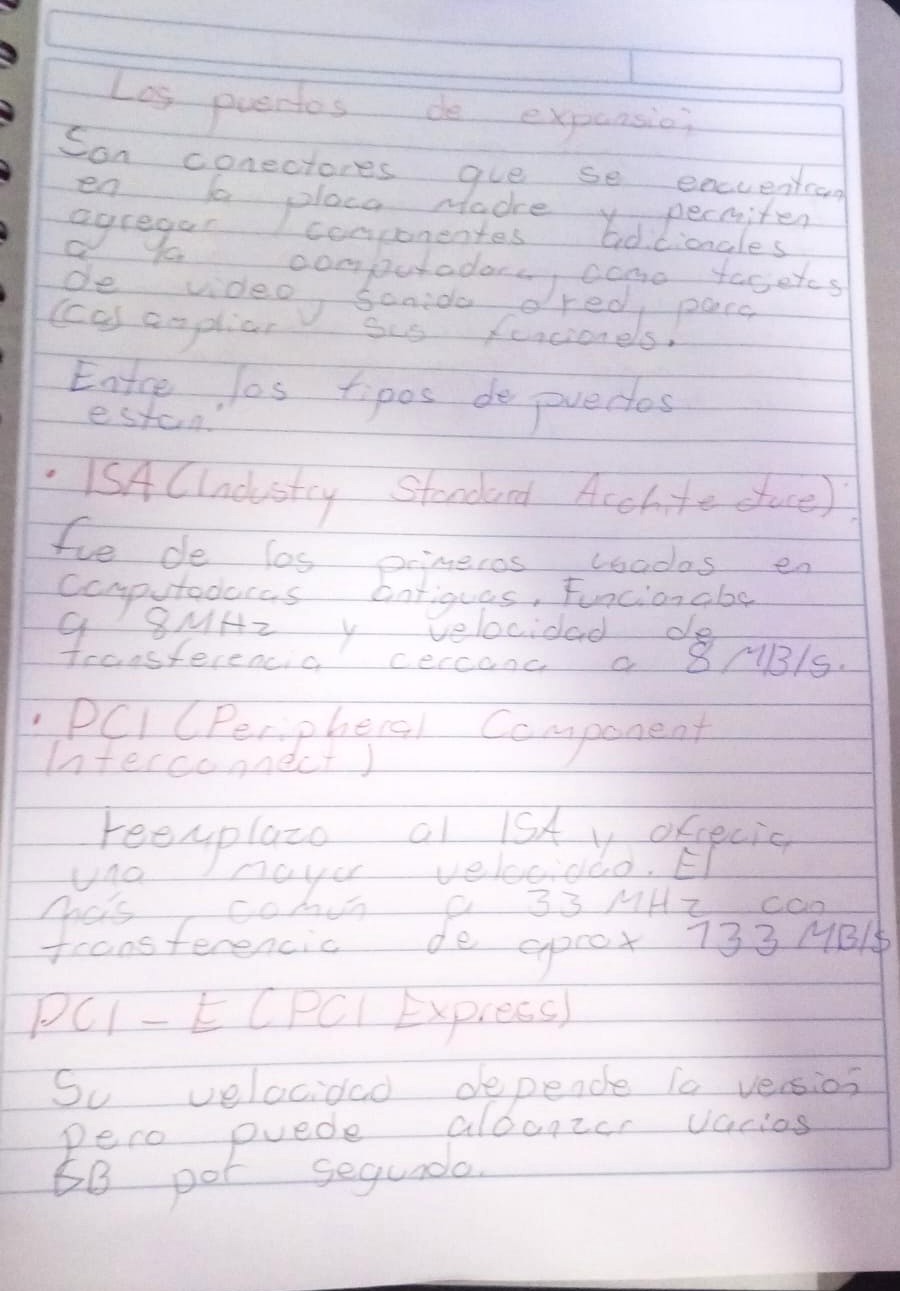 Los puertos de expansión
Son conectores que se encuentran
en la placa Madre y permiten
agregar componentes adicionales
a la computadora, como targetas
de video, sonido o red, para
asi ampliar sus funciones.
Entre los tipos de puertos
estan:
• ISA (Industry Standard Architecture):
fue de los primeros usados en
computadoras antiguas. Funcionaba
a 8MHz y velocidad de
transferencia cercana a 8 MB/s.
• PCI (Peripheral Component
Interconnect)
reemplazo al ISA y ofrecia
una mayor velocidad. El
más común a 33 MHz con
transferencia de aprox 133 MB/s
PCI-E (PCI Express)
Su velocidad depende la version
pero puede alcanzar varios
GB por segundo.